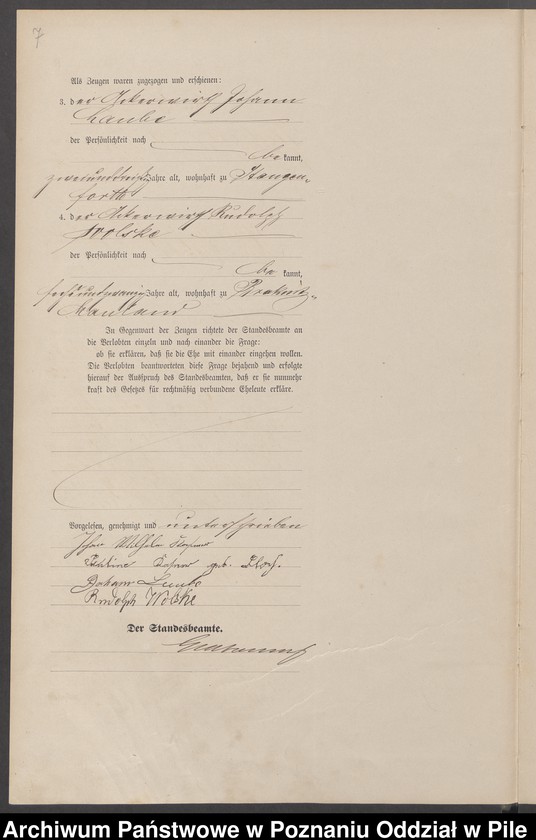 7
Als Zeugen waren zugezogen und erschienen:
3. der Ackerwirth Johann
Laube
der Persönlichkeit nach
be kannt,
zweiunddreißig Jahre alt, wohnhaft zu Stangen-
forth
4. der Ackerwirth Rudolph
Wolske
der Persönlichkeit nach
be kannt,
sechsundzwanzig Jahre alt, wohnhaft zu
Hauland
In Gegenwart der Zeugen richtete der Standesbeamte an
die Verlobten einzeln und nach einander die Frage:
ob sie erklären, daß sie die Ehe mit einander eingehen wollen.
Die Verlobten beantworteten diese Frage bejahend und erfolgte
hierauf der Ausspruch des Standesbeamten, daß er sie nunmehr
kraft des Gesetzes für rechtmäßig verbundene Eheleute erkläre.
Vorgelesen, genehmigt und unterschrieben
Johan Wilhelm
geb.
Johann Laube
Rudolph Wolske
Der Standesbeamte.
Archiwum Państwowe w Poznaniu Oddział w Pile